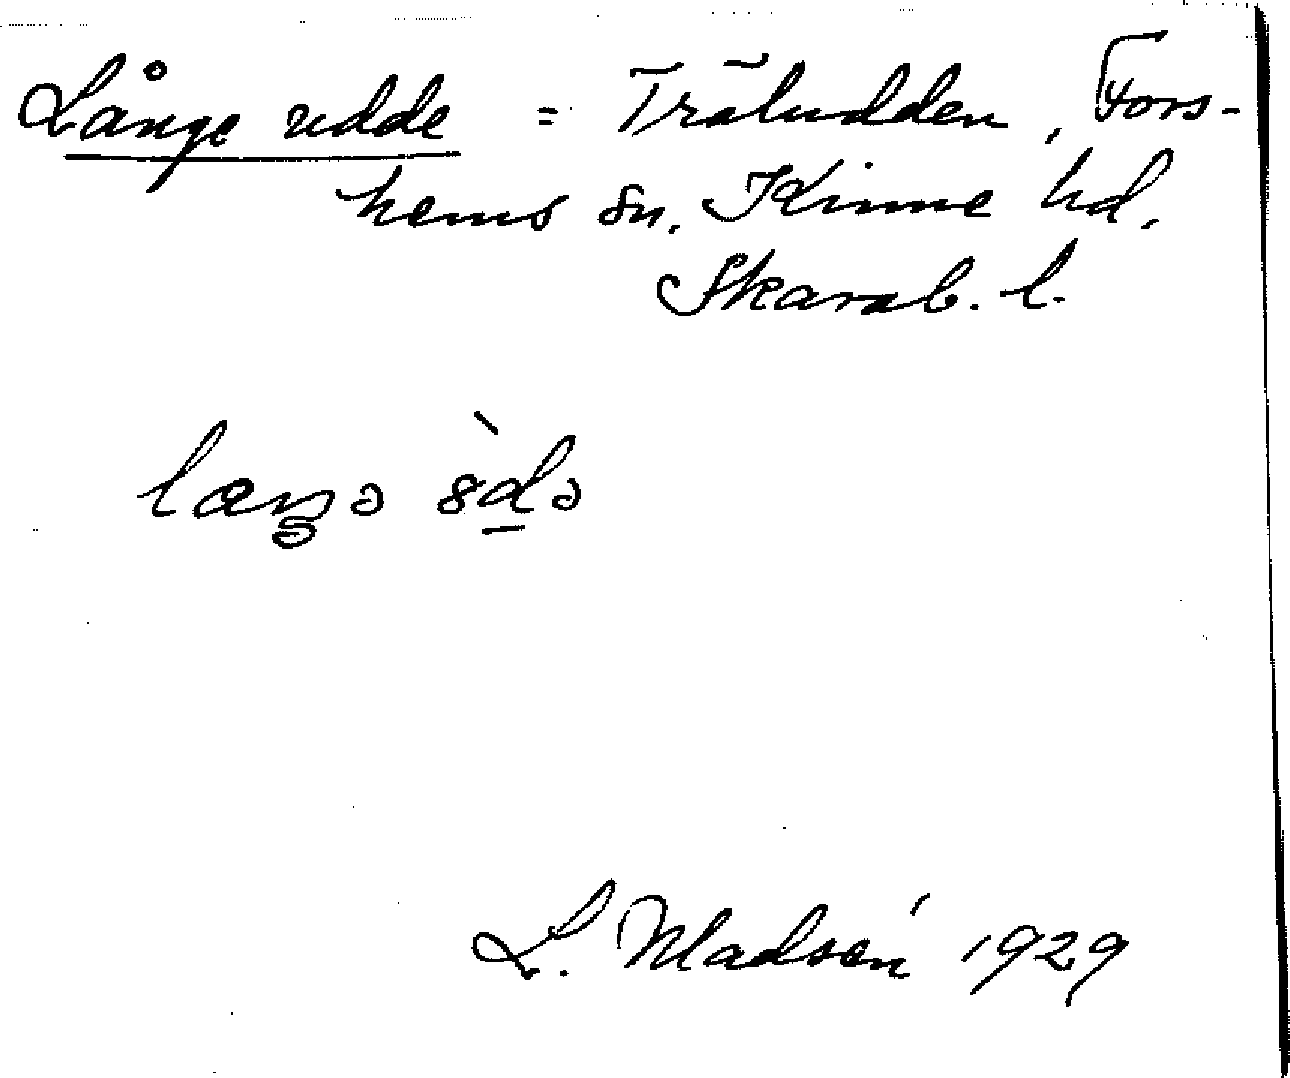 Långe udde = Träludden, Fors-
hems sn. Kinne hd.
Skarab. l.
L. Madsén 1929